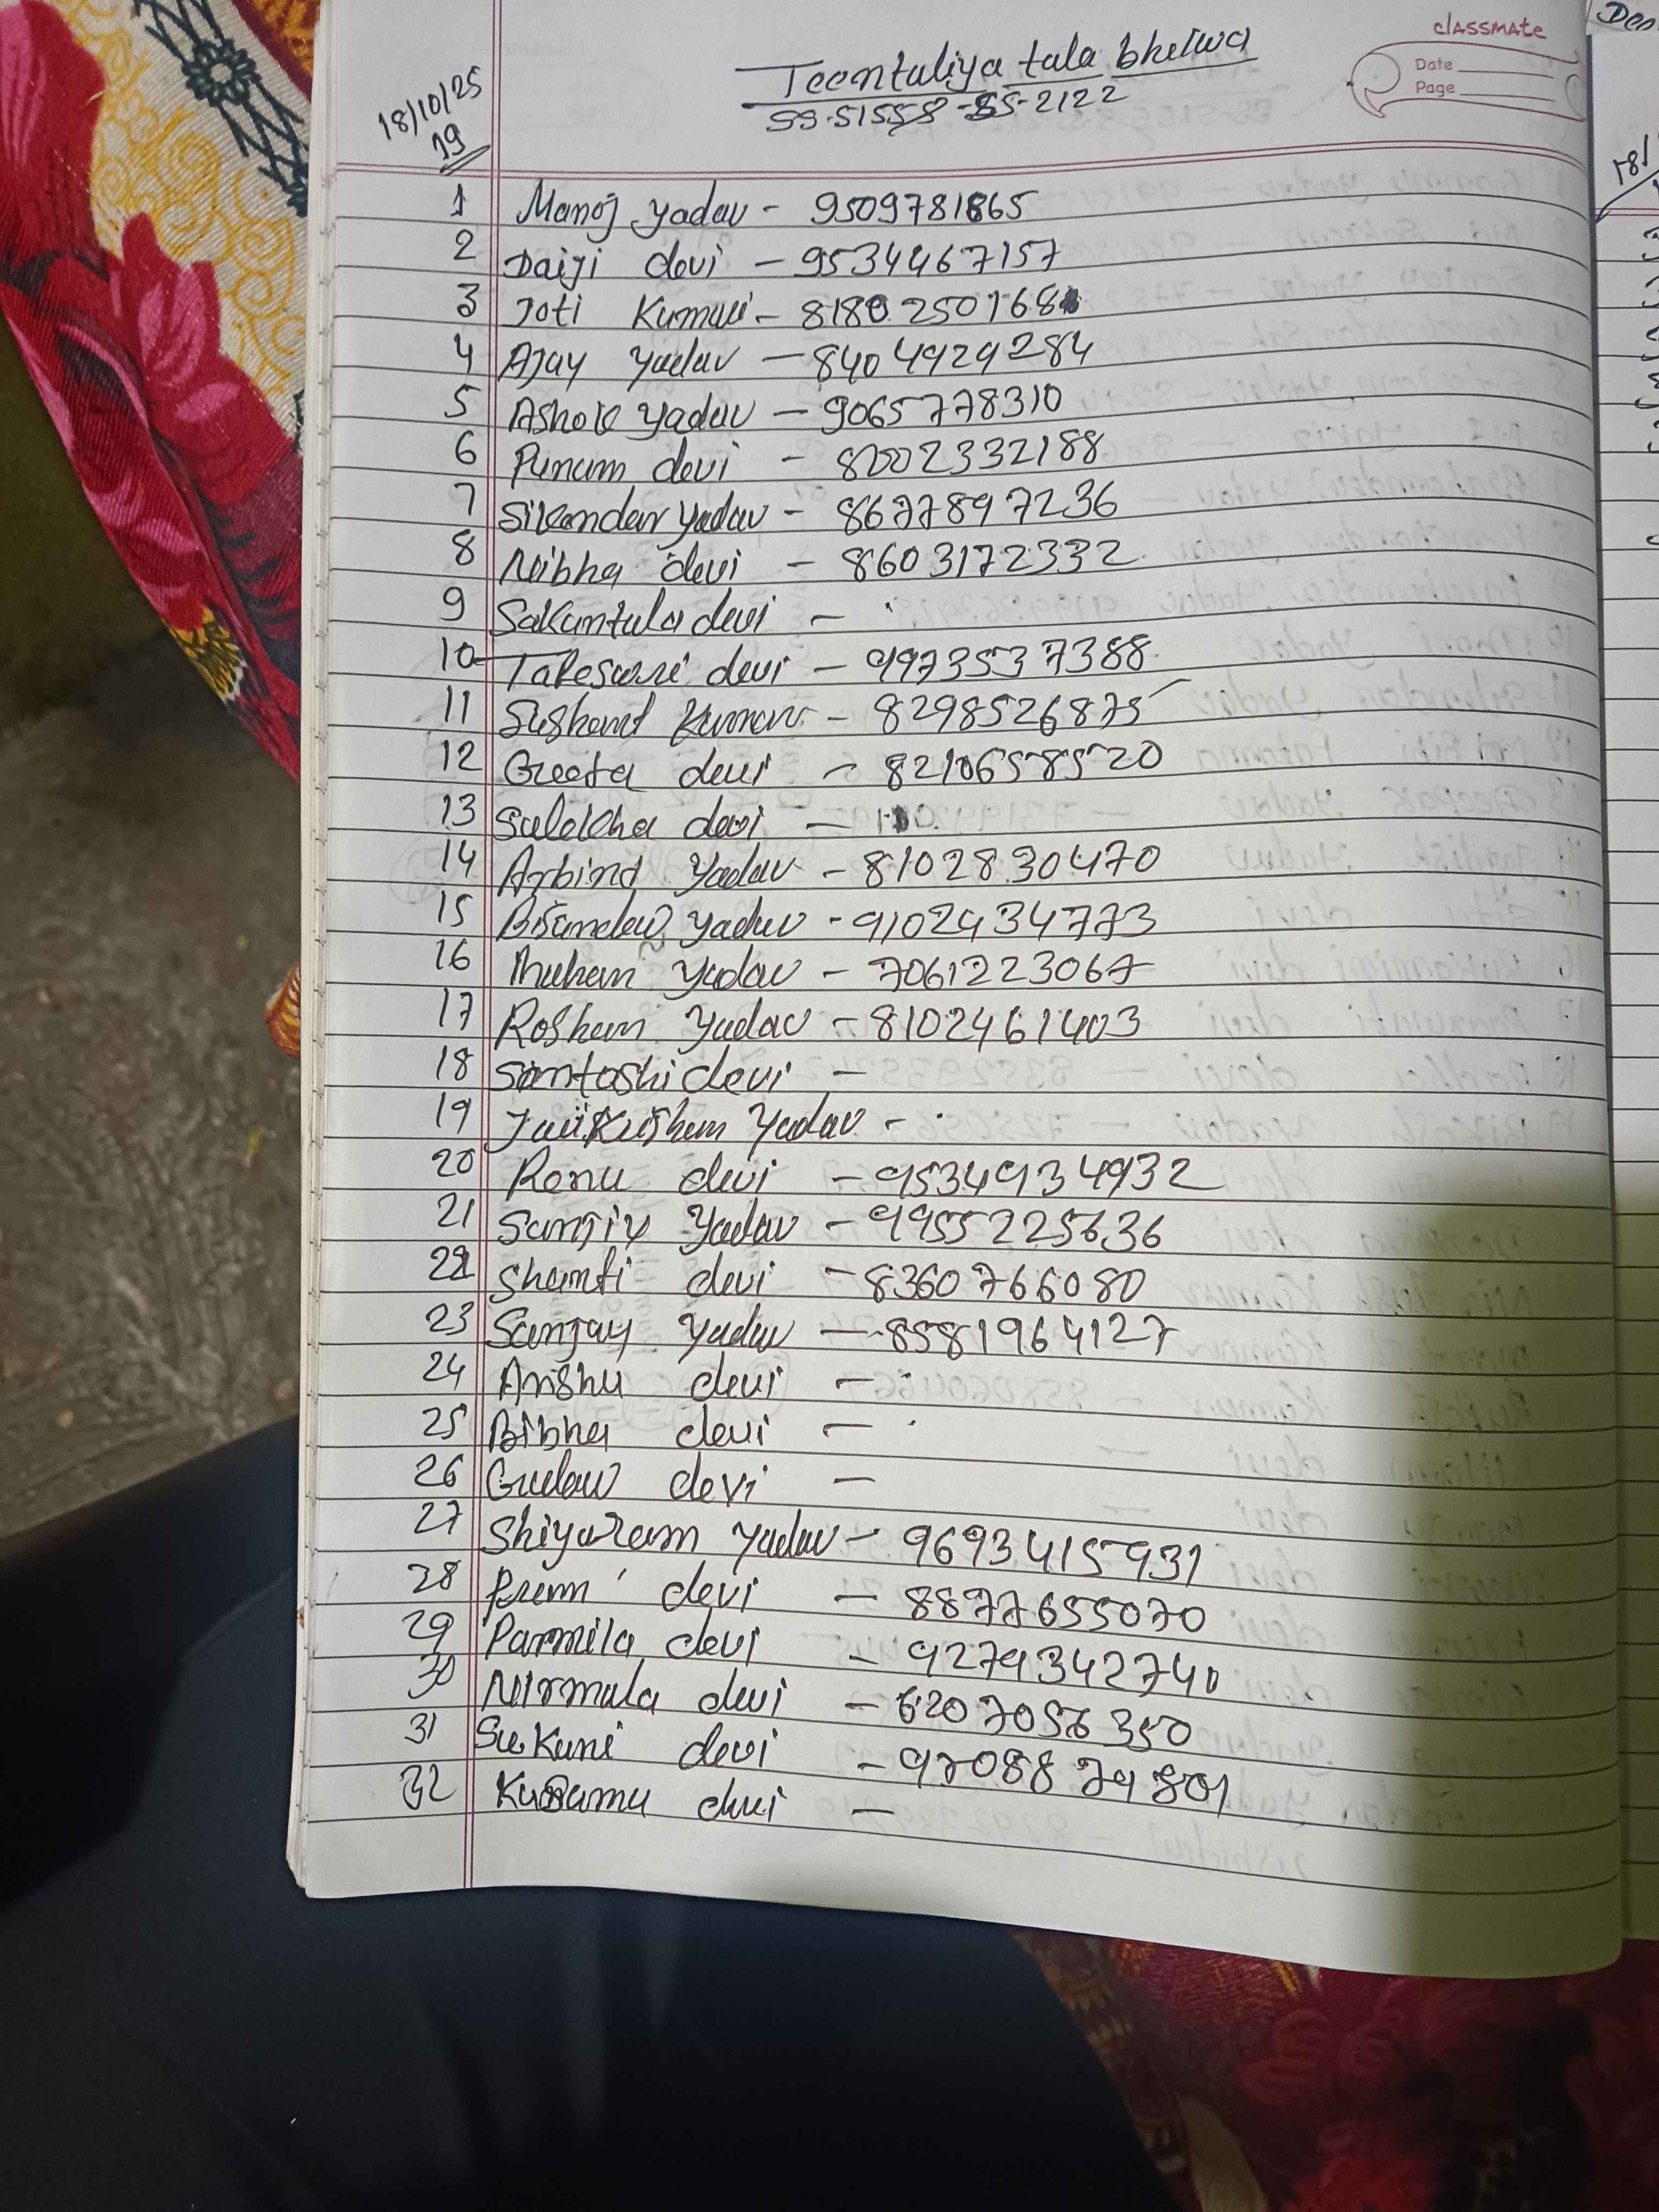 classmate
Date
Page
Teentaliya tala bhelwa
SS-2122
18/10/25
19
1 Manoj yadav - 9509781865
2 Daiji devi - 9534467157
3 Joti Kumari - 8180250168
4 Ajay yadav - 8404929284
5 Ashok yadav - 9065778310
6 Punam devi - 82002332188
7 Sikandar yadav - 8677897236
8 Nibha devi - 8603172332
9 Sakuntula devi -
10 Takeswri devi - 9973537388
11 Sushant Kumar - 8298526875
12 Geeta devi - 8210658520
13 Sulekha devi -
14 Arbind Yadav - 8102830470
15 yadav - 9102434773
16 yadav - 7061223067
17 Roshan yadav - 8102461403
18 Santoshi devi -
19 Yadav -
20 Renu devi - 9534934932
21 Sanjiv Yadav - 9955225636
22 Shanti devi - 8360766080
23 Sanjay yadav - 8581964127
24 Anshu devi -
25 Bibha devi -
26 devi -
27 Shiyaram yadav - 9693415931
28 Prem devi - 8877655070
29 Parmila devi - 9279342740
30 Nirmala devi - 6207056350
31 Sukuni devi - 9708879801
32 devi -